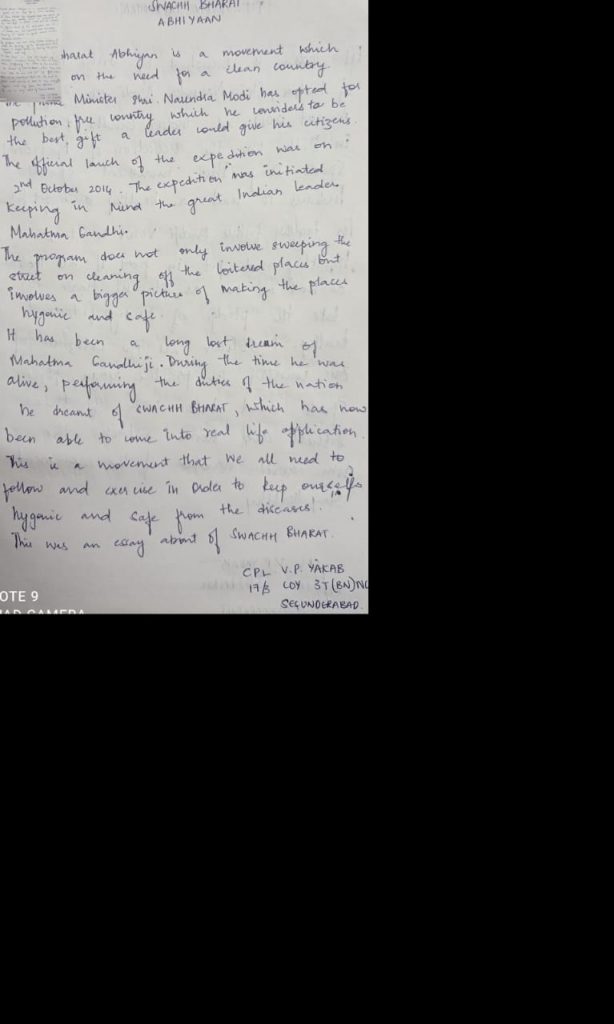 SWACHH BHARAT
ABHIYAAN
Bharat Abhiyan is a movement which
on the need for a clean country
Minister Shri. Narendra Modi has opted for
pollution free country which he considers to be
the best gift a leader could give his citizens.
The official lauch of the expedition was on
2nd October 2014. The expedition was initiated
Keeping in Mind the great Indian leader,
Mahatma Gandhi.
The program does not only involve sweeping the
street on cleaning off the loitered places but
involves a bigger picture of making the places
hygenic and safe.
It has been a long lost dream of
Mahatma Gandhiji. During the time he was
alive, performing the duties of the nation
he dreamt of SWACHH BHARAT, which has now
been able to come into real life application.
This is a movement that we all need to
follow and exercise in order to keep ourselfs
hygenic and safe from the diseases.
This was an essay about of SWACHH BHARAT.
CPL V.P. YAKAB
17/3 COY 3T(BN)NC
SECUNDERABAD.
OTE 9
AD CAMERA